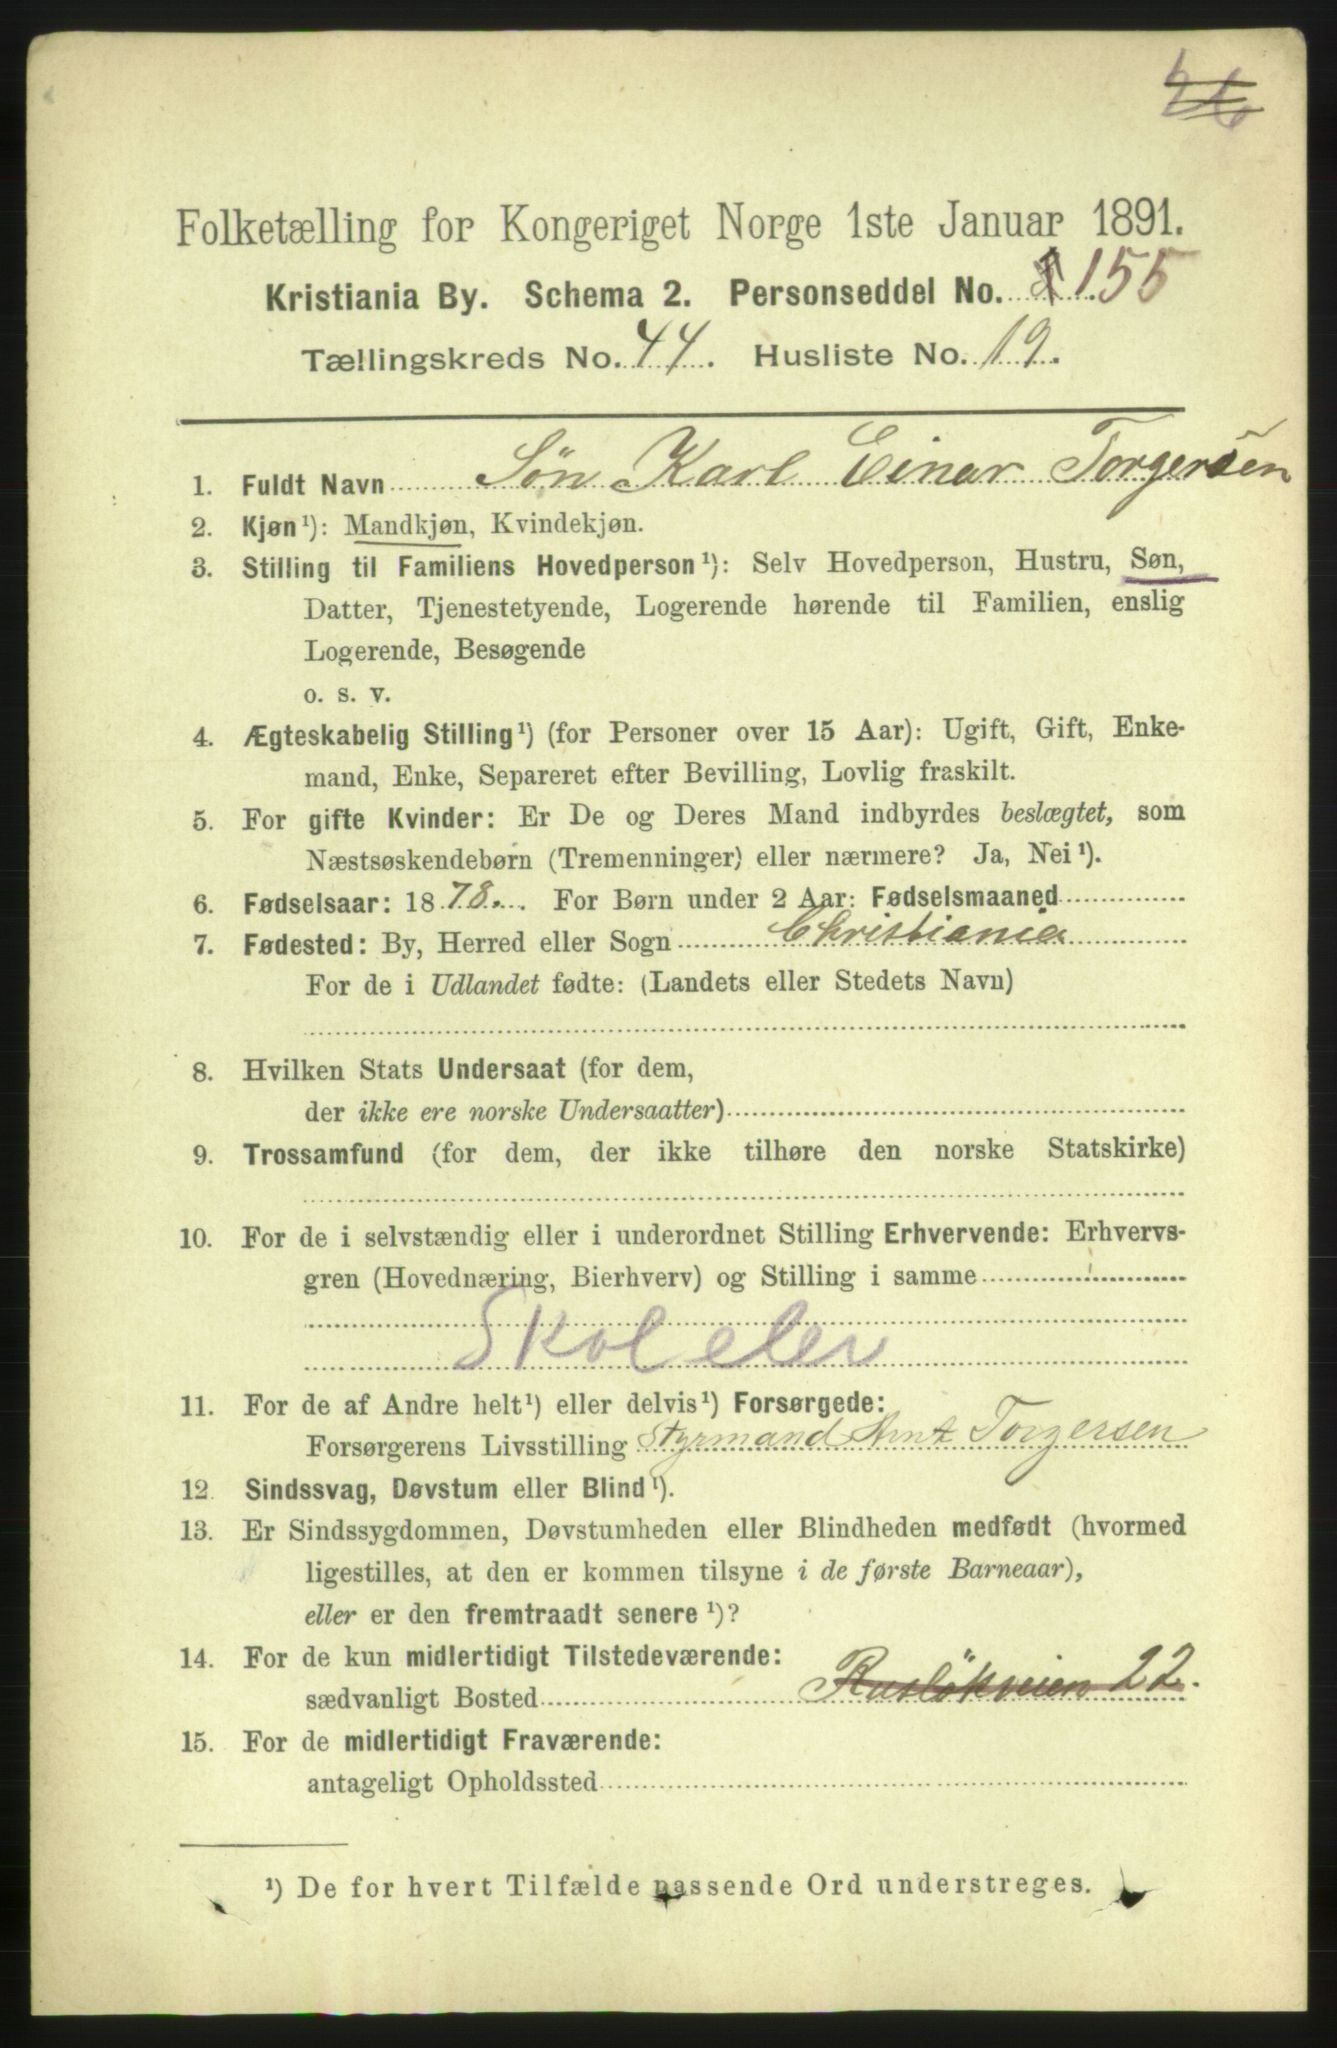 26
Folketælling for Kongeriget Norge 1ste Januar 1891.
Kristiania By. Schema 2. Personseddel No. 155
Tællingskreds No. 44. Husliste No. 19.
1. Fuldt Navn Søn Karl Einar Torgersen
2. Kjøn¹): Mandkjøn, Kvindekjøn.
3. Stilling til Familiens Hovedperson¹): Selv Hovedperson, Hustru, Søn,
Datter, Tjenestetyende, Logerende hørende til Familien, enslig
Logerende, Besøgende
o. s. v.
4. Ægteskabelig Stilling¹) (for Personer over 15 Aar): Ugift, Gift, Enke-
mand, Enke, Separeret efter Bevilling, Lovlig fraskilt.
5. For gifte Kvinder: Er De og Deres Mand indbyrdes beslægtet, som
Næstsøskendebørn (Tremenninger) eller nærmere? Ja, Nei¹).
6. Fødselsaar: 1878. For Børn under 2 Aar: Fødselsmaaned
7. Fødested: By, Herred eller Sogn Christiania
For de i Udlandet fødte: (Landets eller Stedets Navn)
8. Hvilken Stats Undersaat (for dem,
der ikke ere norske Undersaatter)
9. Trossamfund (for dem, der ikke tilhøre den norske Statskirke)
10. For de i selvstændig eller i underordnet Stilling Erhvervende: Erhvervs-
gren (Hovednæring, Bierhverv) og Stilling i samme
Skolelev
11. For de af Andre helt¹) eller delvis¹) Forsørgede:
Forsørgerens Livsstilling Styrmand Arnt Torgersen
12. Sindssvag, Døvstum eller Blind¹).
13. Er Sindssygdommen, Døvstumheden eller Blindheden medfødt (hvormed
ligestilles, at den er kommen tilsyne i de første Barneaar),
eller er den fremtraadt senere¹)?
14. For de kun midlertidigt Tilstedeværende:
sædvanligt Bosted Rusløkveien 22.
15. For de midlertidigt Fraværende:
antageligt Opholdssted
¹) De for hvert Tilfælde passende Ord understreges.